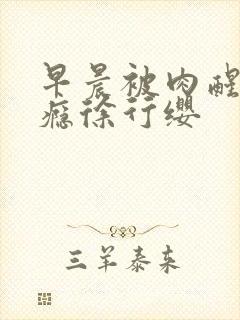 早晨被肉醒
瘾徐行缨
三羊泰来